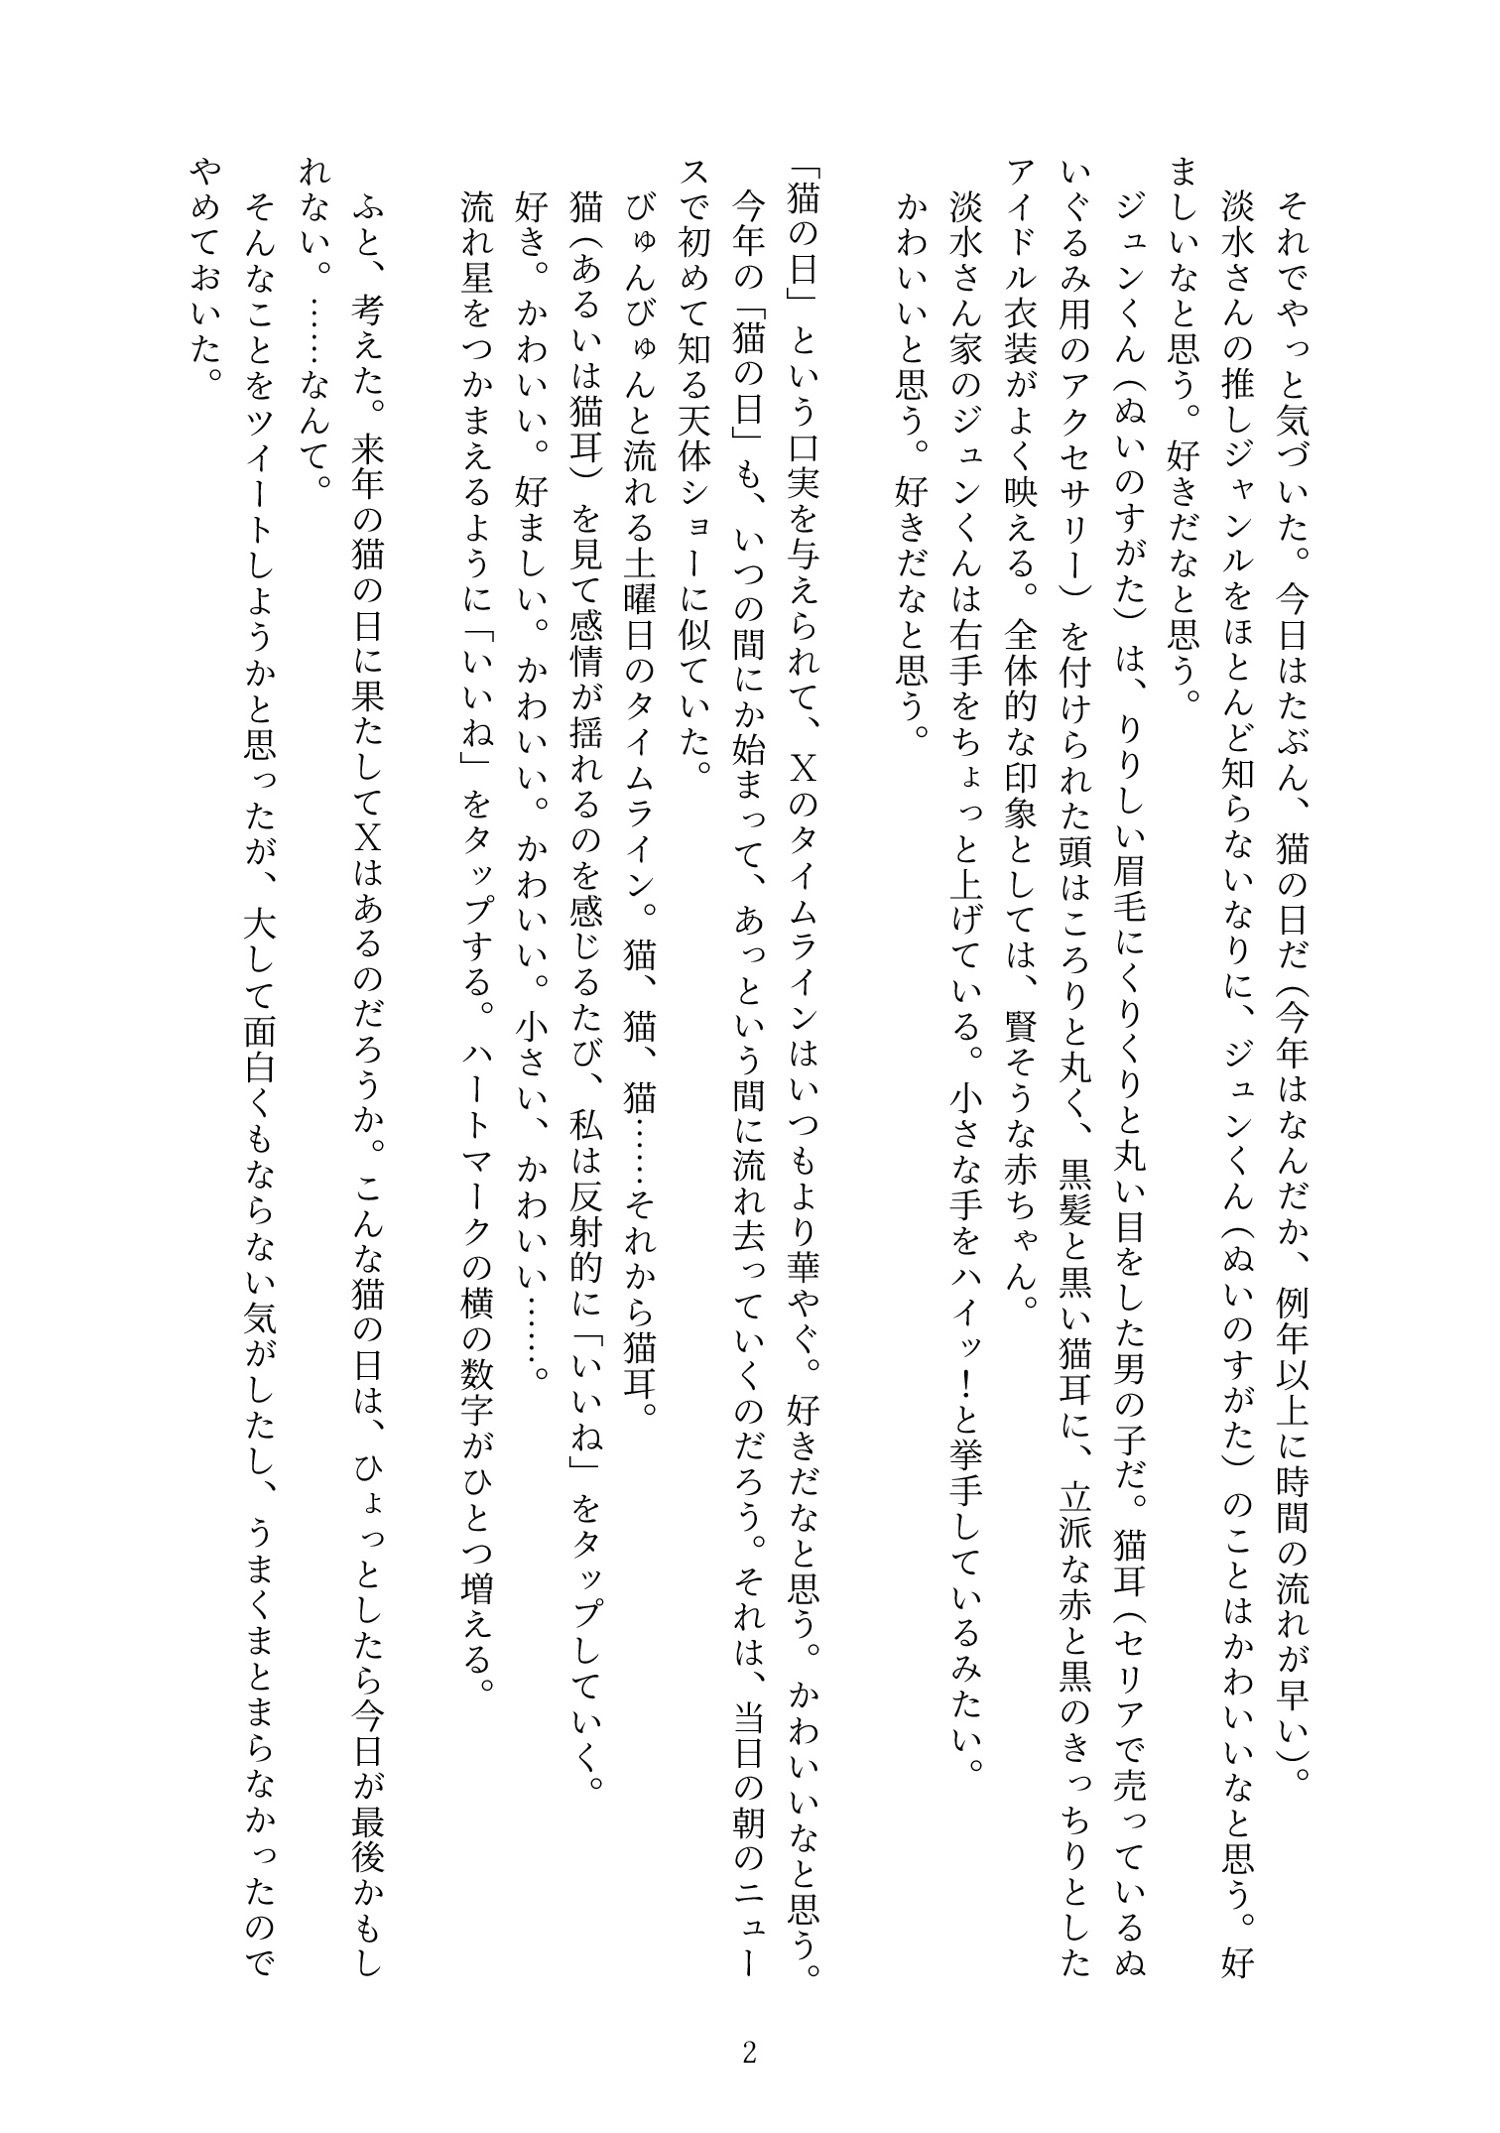 それでやっと気づいた。今日はたぶん、猫の日だ（今年はなんだか、例年以上に時間の流れが早い）。
淡水さんの推しジャンルをほとんど知らないなりに、ジュンくん（ぬいのすがた）のことはかわいいなと思う。好
ましいなと思う。好きだなと思う。
ジュンくん（ぬいのすがた）は、りりしい眉毛にくりくりと丸い目をした男の子だ。猫耳（セリアで売っているぬ
いぐるみ用のアクセサリー）を付けられた頭はころりと丸く、黒髪と黒い猫耳に、立派な赤と黒のきっちりとした
アイドル衣装がよく映える。全体的な印象としては、賢そうな赤ちゃん。
淡水さん家のジュンくんは右手をちょっと上げている。小さな手をハイッ！と挙手しているみたい。
かわいいと思う。好きだなと思う。
「猫の日」という口実を与えられて、Ｘのタイムラインはいつもより華やぐ。好きだなと思う。かわいいなと思う。
今年の「猫の日」も、いつの間にか始まって、あっという間に流れ去っていくのだろう。それは、当日の朝のニュー
スで初めて知る天体ショーに似ていた。
びゅんびゅんと流れる土曜日のタイムライン。猫、猫、猫……それから猫耳。
猫（あるいは猫耳）を見て感情が揺れるのを感じるたび、私は反射的に「いいね」をタップしていく。
好き。かわいい。好ましい。かわいい。かわいい。小さい、かわいい……。
流れ星をつかまえるように「いいね」をタップする。ハートマークの横の数字がひとつ増える。
ふと、考えた。来年の猫の日に果たしてＸはあるのだろうか。こんな猫の日は、ひょっとしたら今日が最後かもし
れない。……なんて。
そんなことをツイートしようかと思ったが、大して面白くもならない気がしたし、うまくまとまらなかったので
やめておいた。
2